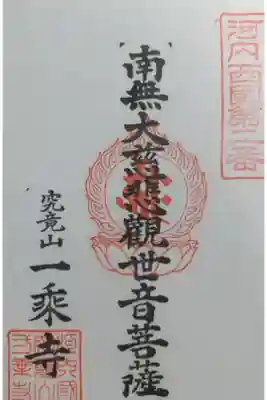 河内西国第二番
南無大慈悲觀世音菩薩
究竟山
一乗寺